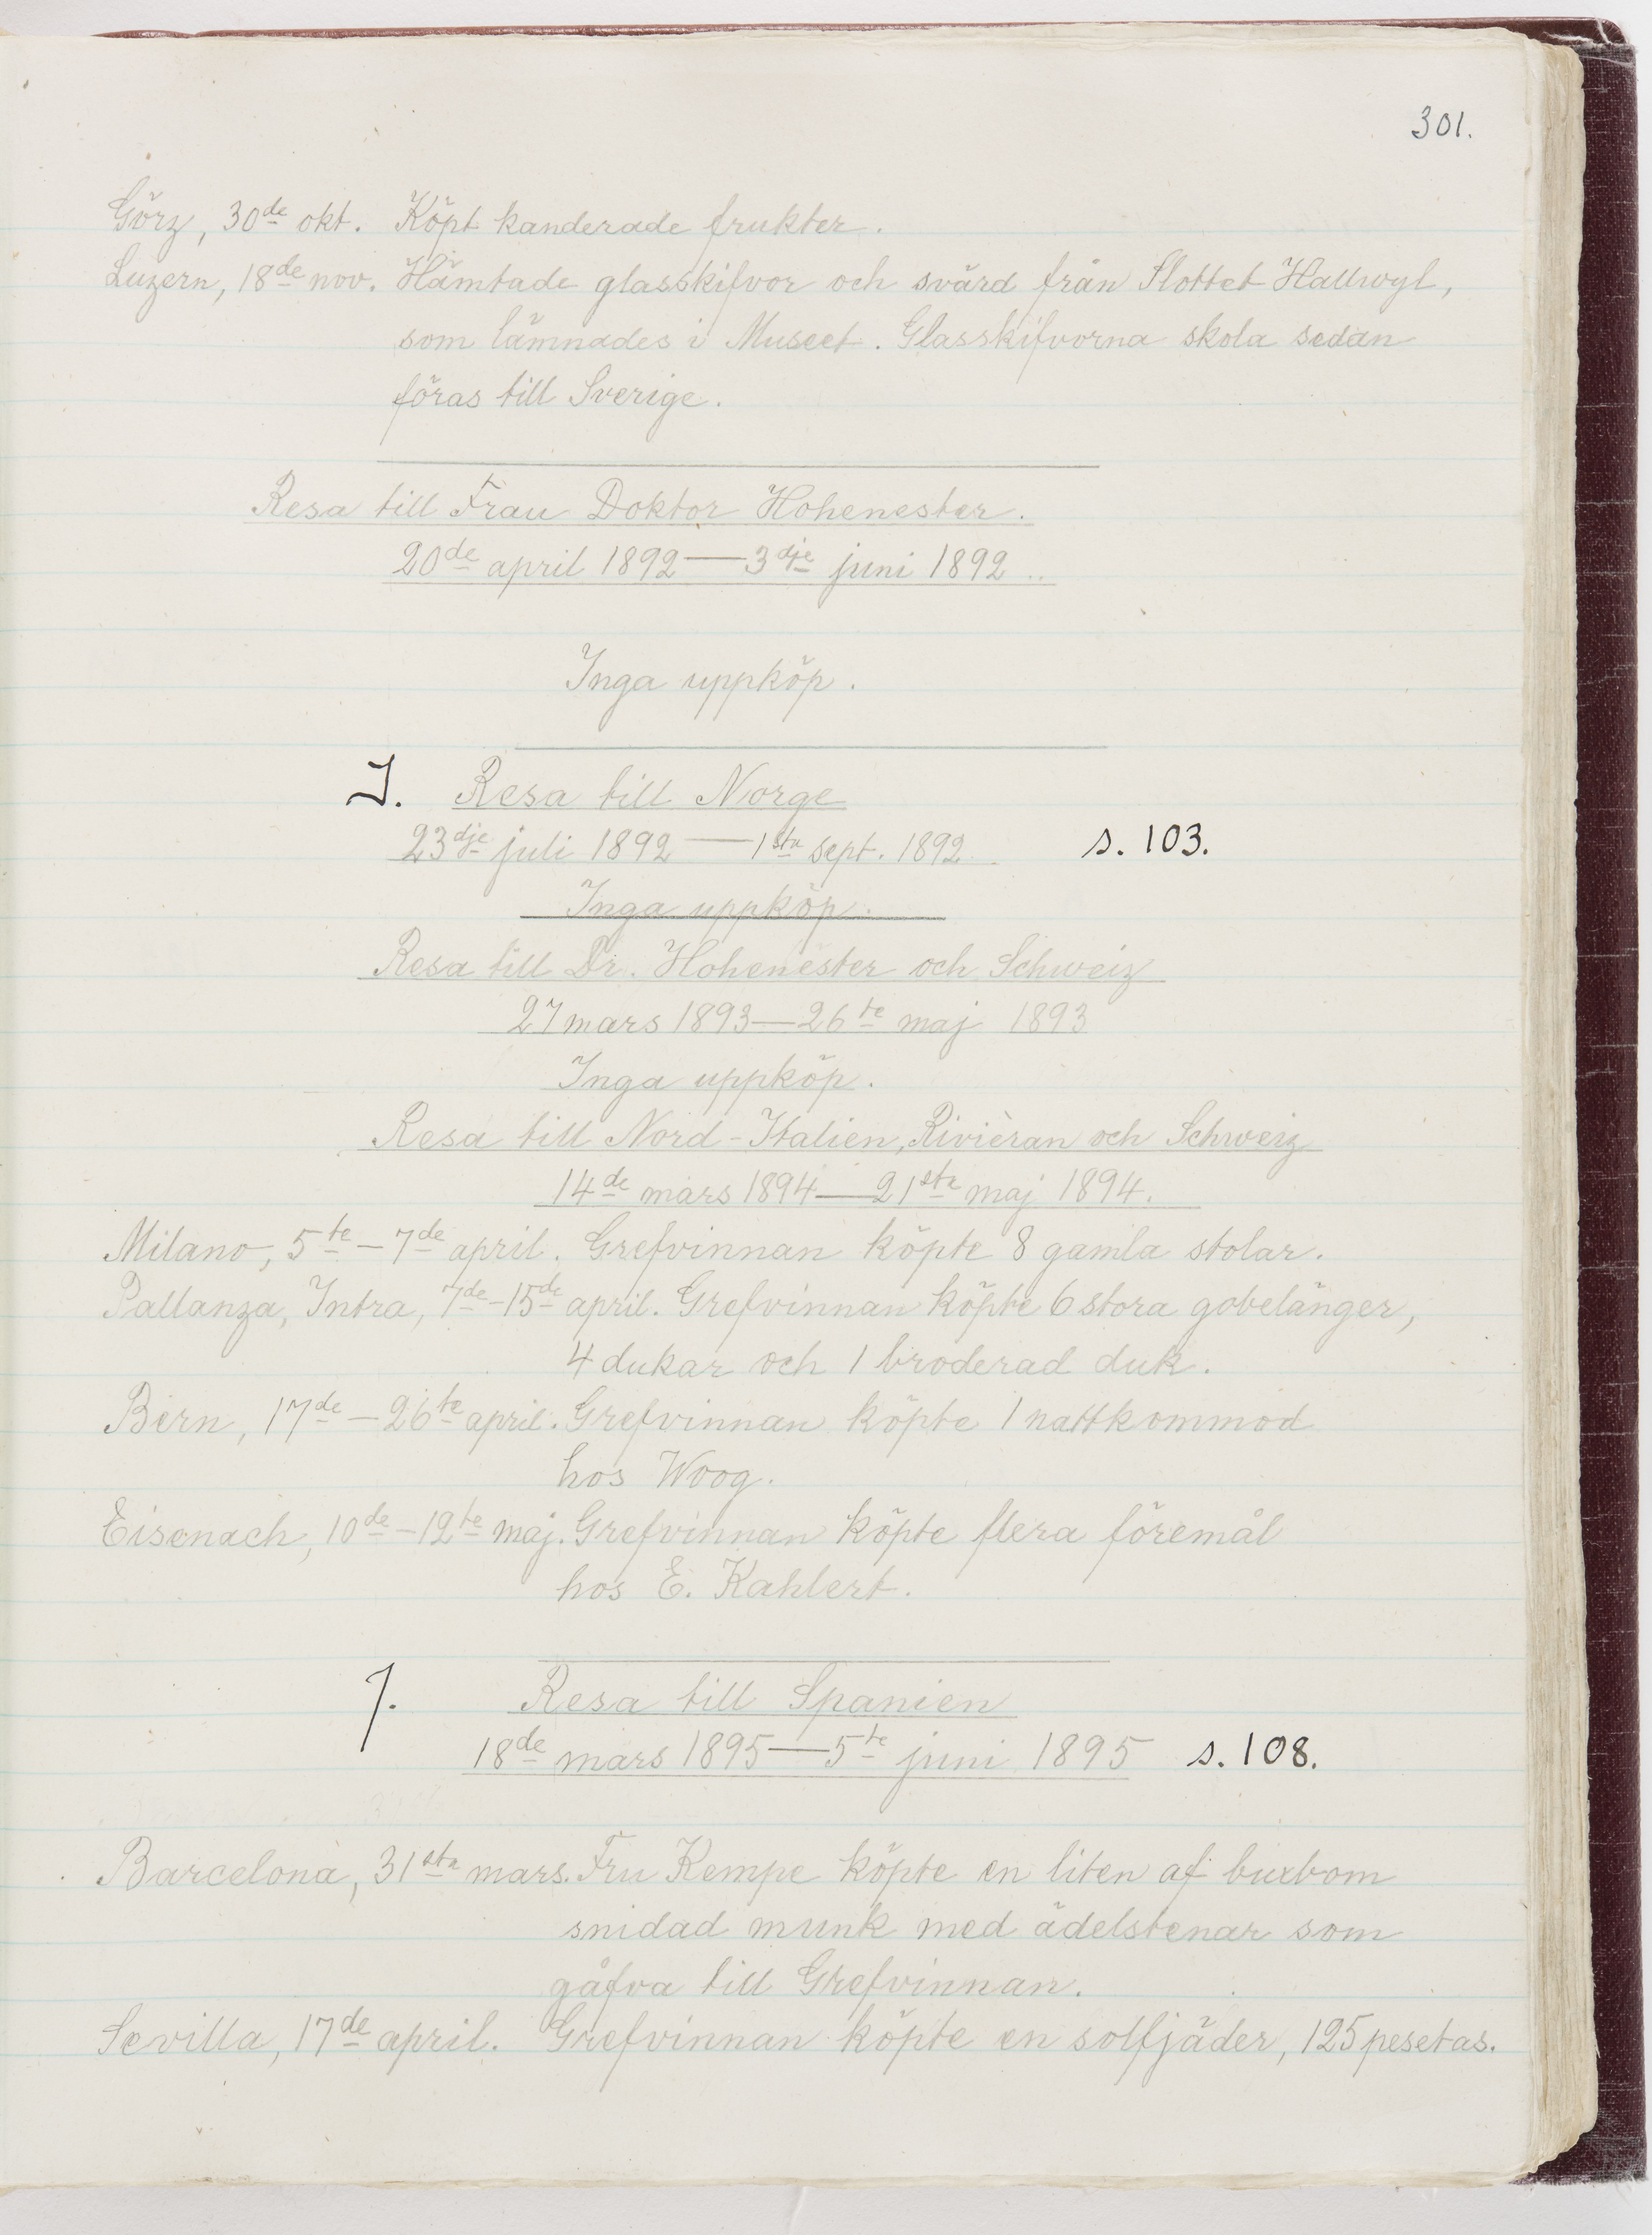 301.
Görz, 30de okt. Köpt kanderade frukter.
Luzern, 18de nov. Hämtade glasskifvor och svärd från Slottet Hallwyl,
som lämnades i Museet. Glasskifvorna skola sedan
föras till Sverige.
Resa till Frau Doktor Hohenester.
20de april 1892—3dje juni 1892..
Inga uppköp.
J. Resa till Norge
23dje juli 1892—1sta sept. 1892. s. 103.
Inga uppköp.
Resa till Dr. Hohenester och Schweiz
27 mars 1893—26te maj 1893
Inga uppköp.
Resa till Nord-Italien, Rivièran och Schweiz
14de mars 1894—21sta maj 1894.
Milano, 5te—7de april. Grefvinnan köpte 8 gamla stolar.
Pallanza, Intra, 7de-15de april. Grefvinnan köpte 6 stora gobelänger,
4 dukar och 1 broderad duk.
Bern, 17de—26te april. Grefvinnan köpte 1 nattkommod
hos Woog.
Eisenach, 10de-12te maj. Grefvinnan köpte flera föremål
hos E. Kahlert.
J. Resa till Spanien
18de mars 1895—5te juni 1895 s. 108.
Barcelona, 31sta mars. Fru Kempe köpte en liten af buxbom
snidad munk med ädelstenar som
gåfva till Grefvinnan.
Sevilla, 17de april. Grefvinnan köpte en solfjäder, 125 pesetas.